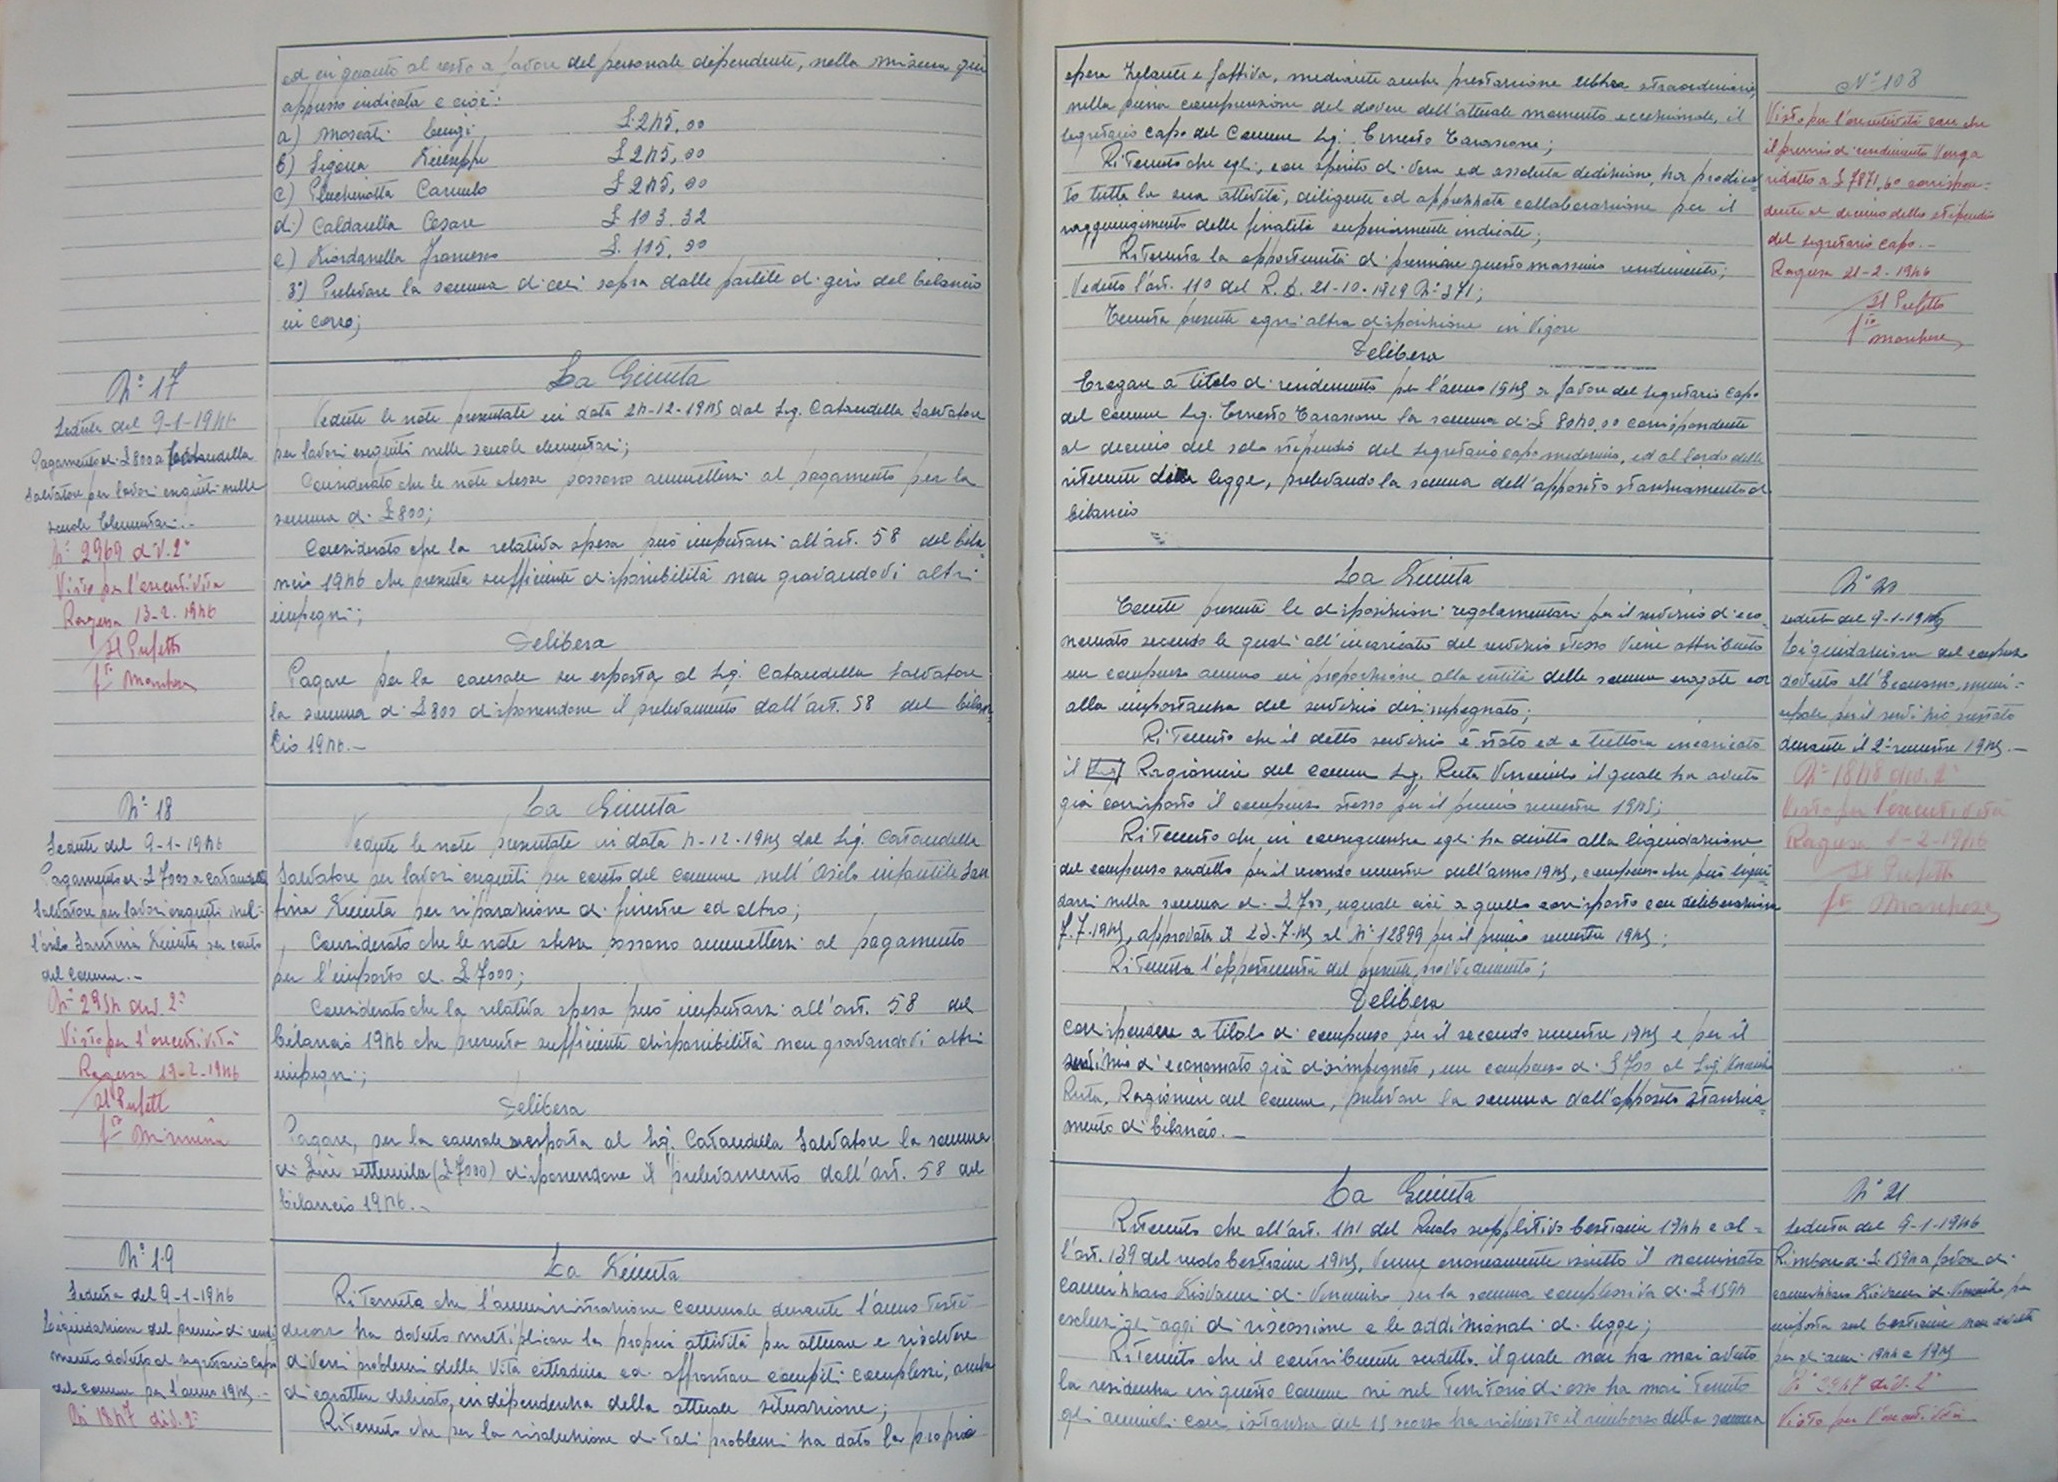 ed in quanto al resto a favore del personale dipendente, nella misura qui
appresso indicata e cioè:
a) Moscati Luigi £. 245,00
b) Ligona Giuseppe £ 245,00
c) Pluchinotta Carmelo £ 245,00
d) Caldarella Cesare £ 103.32
e) Giordanella Francesco £. 105,00
3°) Prelevare la somma di cui sopra dalle partite di giro del bilancio
in corso;
N° 17
Seduta del 9-1-1946
Pagamento di £ 800 a Cataudella
Salvatore per lavori eseguiti nelle
scuole Elementari.-
N° 2969 div. 2°
Visto per l'esecutività
Ragusa 13-2-1946
Il Prefetto
f.to Marchese
La Giunta
Vedute le note presentate in data 24-12-1945 dal Sig. Cataudella Salvatore
per lavori eseguiti nelle scuole elementari;
Considerato che le note stesse possono ammettersi al pagamento per la
somma di £ 800;
Considerato che la relativa spesa può imputarsi all'art. 58 del bila-
ncio 1946 che presenta sufficiente disponibilità non gravandovi altri
impegni;
Delibera
Pagare per la causale su esposta al Sig. Cataudella Salvatore
la somma di £ 800 disponendone il prelevamento dall'art. 58 del bilan-
cio 1946.-
N° 18
Seduta del 9-1-1946
Pagamento di £ 7000 a Cataudella
Salvatore per lavori eseguiti nel-
l'asilo Santina Giunta per conto
del Comune.-
N° 2954 div. 2°
Visto per l'esecutività
Ragusa 13-2-1946
Il Prefetto
f.to
La Giunta
Vedute le note presentate in data 4-12-1945 dal Sig. Cataudella
Salvatore per lavori eseguiti per conto del Comune nell'Asilo infantile San
tina Giunta per riparazione di finestre ed altro;
Considerato che le note stesse possono ammettersi al pagamento
per l'importo di £ 7000;
Considerato che la relativa spesa può imputarsi all'art. 58 del
bilancio 1946 che presenta sufficiente disponibilità non gravandovi altri
impegni;
Delibera
Pagare, per la causale suesposta al Sig. Cataudella Salvatore la somma
di Lire settemila (£ 7000) disponendone il prelevamento dall'art. 58 del
bilancio 1946.-
N° 19
Seduta del 9-1-1946
Liquidazione del premio di rendi
mento dovuto al segretario Capo
del comune per l'anno 1945.-
N° 1847 div. 2°
La Giunta
Ritenuto che l'amministrazione comunale durante l'anno testè
decorso ha dovuto moltiplicare la propria attività per attuare e risolvere
diversi problemi della vita cittadina ed affrontare compiti complessi, anche
di carattere delicato, in dipendenza della attuale situazione;
Ritenuto che per la risoluzione di tali problemi ha dato la propria
opera zelante e fattiva, mediante anche prestazione straordinaria,
nella piena comprensione del dovere dell'attuale momento eccezionale, il
segretario capo del Comune Sig. Ernesto Carassone;
Ritenuto che egli, con spirito di vera ed assoluta dedizione, ha prodiga-
to tutta la sua attività, diligente ed apprezzata collaborazione per il
raggiungimento delle finalità superiormente indicate;
Ritenuta la opportunità di premiare questo massimo rendimento;
Veduto l'art. 110 del R.D. 21-10-1929 N° 371;
Tenuta presente ogni altra disposizione in vigore
Delibera
Erogare a titolo di rendimento per l'anno 1945 a favore del Segretario capo
del Comune Sig. Ernesto Carassone la somma di £ 8040,00 corrispondente
al decimo del solo stipendio del segretario capo medesimo, ed al lordo delle
ritenute di legge, prelevando la somma dell'apposito stanziamento di
bilancio
N° 108
Visto per l'esecutività con che
il premio di rendimento venga
ridotto a £ 7871,60 corrispon-
dente al decimo dello stipendio
del segretario capo.-
Ragusa 21-2-1946
Il Prefetto
f.to Marchese
La Giunta
Tenute presenti le disposizioni regolamentari per il servizio di eco-
nomato secondo le quali all'incaricato del servizio stesso viene attribuito
un compenso annuo in proporzione alla entità delle somme erogate ed
alla importanza del servizio disimpegnato;
Ritenuto che il detto servizio è stato ed è tuttora incaricato
il Ragioniere del Comune Sig. Ruta Vincenzo il quale ha avuto
già corrisposto il compenso stesso per il primo semestre 1945;
Ritenuto che in conseguenza egli ha diritto alla liquidazione
del compenso sudetto per il secondo semestre dell'anno 1945, compenso che può liqui-
darsi nella somma di £ 700, uguale cioè a quella corrisposta con deliberazione
7.7.1945, approvata il 23-7-45 al N° 12899 per il primo semestre 1945;
Ritenuta l'opportunità del presente provvedimento;
Delibera
Corrispondere a titolo di compenso per il secondo semestre 1945 e per il
servizio di economato già disimpegnato, un compenso di £ 700 al Sig. Vincenzo
Ruta, Ragioniere del Comune, prelevare la somma dall'apposito stanzia-
mento di bilancio.-
N° 20
seduta del 9-1-1945
Liquidazione del compenso
dovuto all'Economo muni-
cipale per il servizio prestato
durante il 2° semestre 1945.-
N° 1848 div. 2°
Visto per l'esecutività
Ragusa 1-2-1946
Il Prefetto
f.to Marchese
La Giunta
Ritenuto che all'art. 141 del Ruolo suppletivo bestiame 1944 e al-
l'art. 139 del ruolo bestiame 1945, venne erroneamente iscritto il nominato
Cannizzaro Giovanni di Vincenzo per la somma complessiva di £ 1594
esclusi gli aggi di riscossione e le addizionali di legge;
Ritenuto che il contribuente sudetto il quale non ha mai avuto
la residenza in questo Comune nè nel territorio di esso ha mai tenuto
gli animali con istanza del 15 scorso ha richiesto il rimborso della somma
N° 21
Seduta del 9-1-1946
Rimborso di £. 1594 a favore di
Cannizzaro Giovanni di Vincenzo, per
imposta sul bestiame non dovuta
per gli anni 1944 e 1945
N° 3947 div. 2°
Visto per l'esecutività